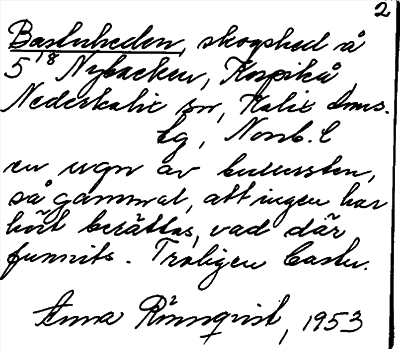 2
Bastuheden, skogshed å
5¹⁸ Nybacken, Korpikå
Nederkalix sn, Kalix tms.
lg, Norrb. l
en ugn av bullersten,
så gammal, att ingen har
hört berättas, vad där
funnits. Troligen bastu.
Anna Rönnqvist, 1953